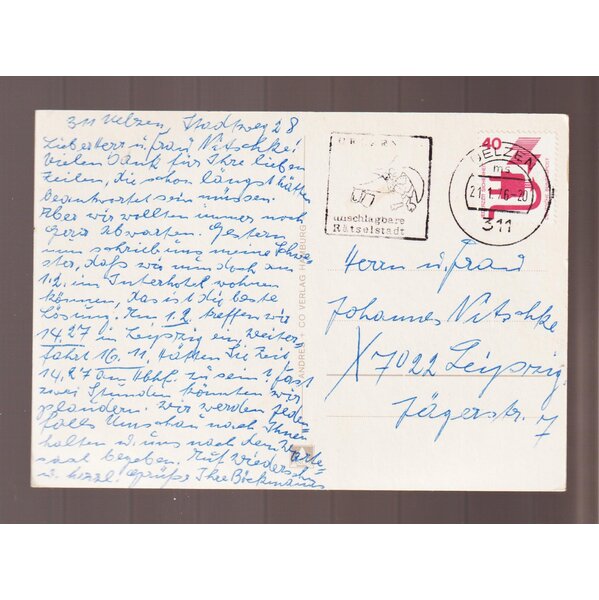 311 Uelzen, Stadtweg 28
Lieber Herr u. Frau Nitschke!
Vielen Dank für Ihre lieben
Zeilen, die schon längst hätten
beantwortet sein müssen.
Aber wir wollten immer noch
Gera abwarten. Gestern
nun schrieb uns meine Schwe-
ster, daß wir nun doch am
1.2. im Interhotel wohnen
können, das ist die beste
Lösung. Am 1.2. treffen wir
14,27 in Leipzig ein, Weiter-
fahrt 16.11. Hätten Sie Zeit
14,27 am Hbhf. zu sein? Fast
zwei Stunden könnten wir
plaudern. Wir werden jeden-
falls Umschau nach Ihnen
halten u. uns nach dem Warte-
saal begeben. Auf Wiedersehn
u. herzl. Grüße Ihre
ANDRES + CO VERLAG HAMBURG
UELZEN
unschlagbare
Rätselstadt
UELZEN
ms
21.1.76-20
311
40
Herrn u. Frau
Johannes Nitschke
X7022 Leipzig
Jägerstr. 7